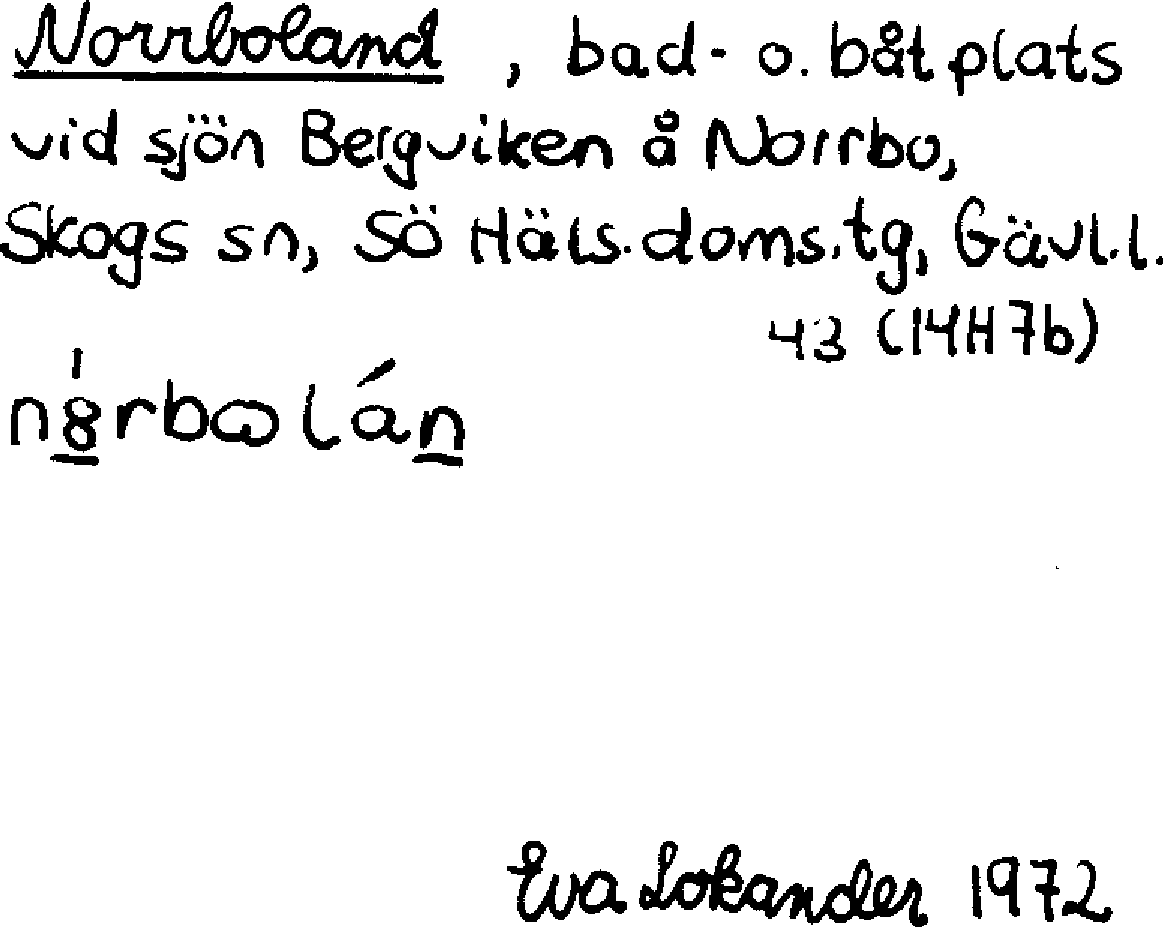 Norrboland, bad- o. båtplats
vid sjön Bergviken å Norrbo,
Skogs sn, Sö Häls. doms.tg, Gävl.l.
43 (14H 7b)
Eva Lokander 1972